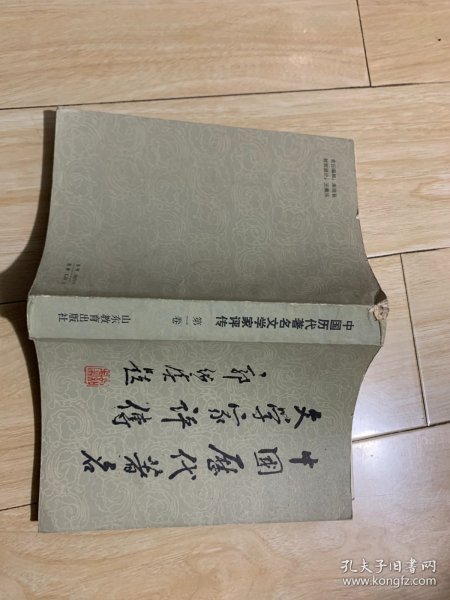 中國歷代著名
文學家評傳
郭绍虞题
中国历代著名文学家评传 第一卷 山东教育出版社
孔夫子旧书网
www.kongfz.com